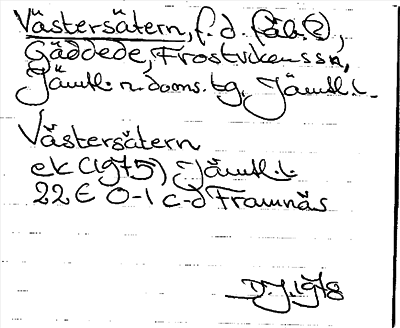 Västersätern, f.d. fäb.(?),
Gäddede, Frostvikens sn,
Jämtl. n. doms. tg, Jämtl. l.
Västersätern
ek (1975) Jämtl. l.
22 E 0-1 c-d Framnäs
D.J. 1978